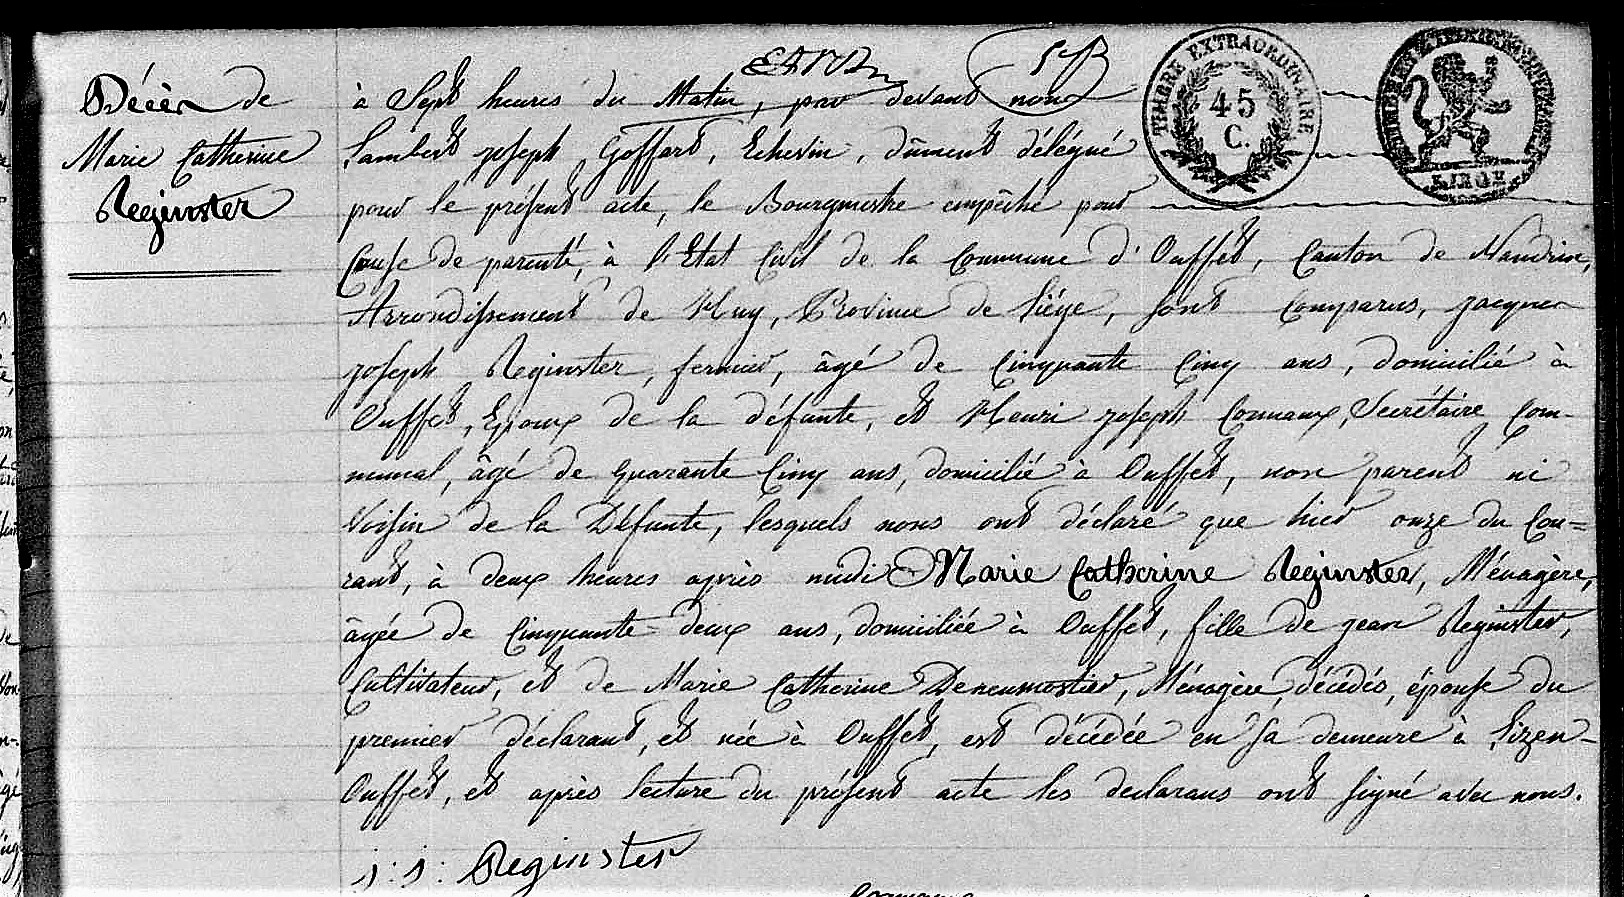 Décès de
Marie Catherine
Reginster
à Sept heures du Matin, par devant nous
Lambert Joseph Goffart, Echevin, dûment délégué
pour le présent acte, le Bourgmestre empêché pour
Cause de parenté, à l'Etat Civil de la Commune d'Ouffet, Canton de Nandrin,
Arrondissement de Huy, Province de Liége, sont comparus, Jacques
Joseph Reginster, fermier, âgé de Cinquante Cinq ans, domicilié à
Ouffet, Epoux de la défunte, et Henri Joseph Connaux, Secrétaire Com-
munal, âgé de quarante Cinq ans, domicilié à Ouffet, non parent ni
Voisin de la Défunte, lesquels nous ont déclaré que hier onze du Cou=
rant, à deux heures après midi Marie Catherine Reginster, Ménagère,
âgée de Cinquante-deux ans, domiciliée à Ouffet, fille de Jean Reginster,
Cultivateur, et de Marie Catherine Deneumostier, Ménagère, décédés, épouse du
premier déclarant, et née à Ouffet, est décédée en sa demeure à Lizen-
Ouffet, et après lecture du présent acte les declarans ont signé avec nous.
j: j: Reginster
TIMBRE EXTRAORDINAIRE
45
C.
LIEGE